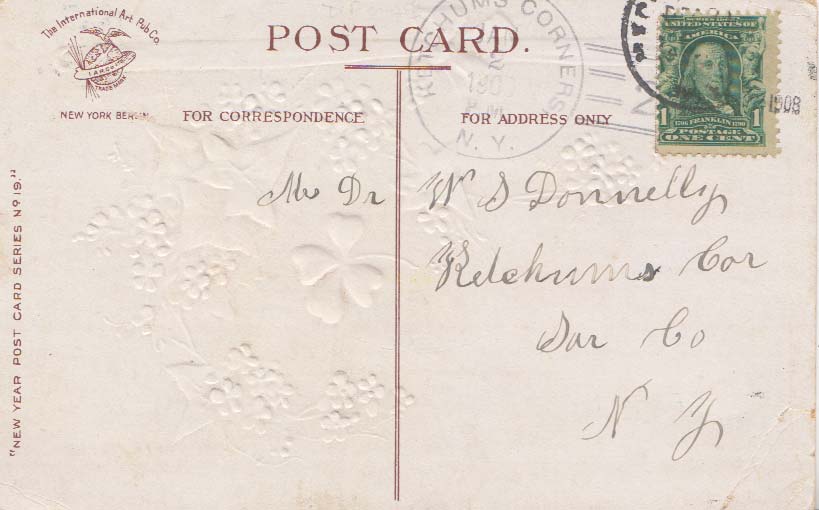 The International Art Pub Co.
TRADE MARK
NEW YORK BERLIN
POST CARD.
FOR CORRESPONDENCE
FOR ADDRESS ONLY
KETCHUMS CORNERS
N. Y.
1908
UNITED STATES OF AMERICA
1 1706 FRANKLIN 1790 1
POSTAGE
ONE CENT
Dr W S Donnelly
Ketchums Cor
Sar Co
N Y
"NEW YEAR POST CARD SERIES No 19."